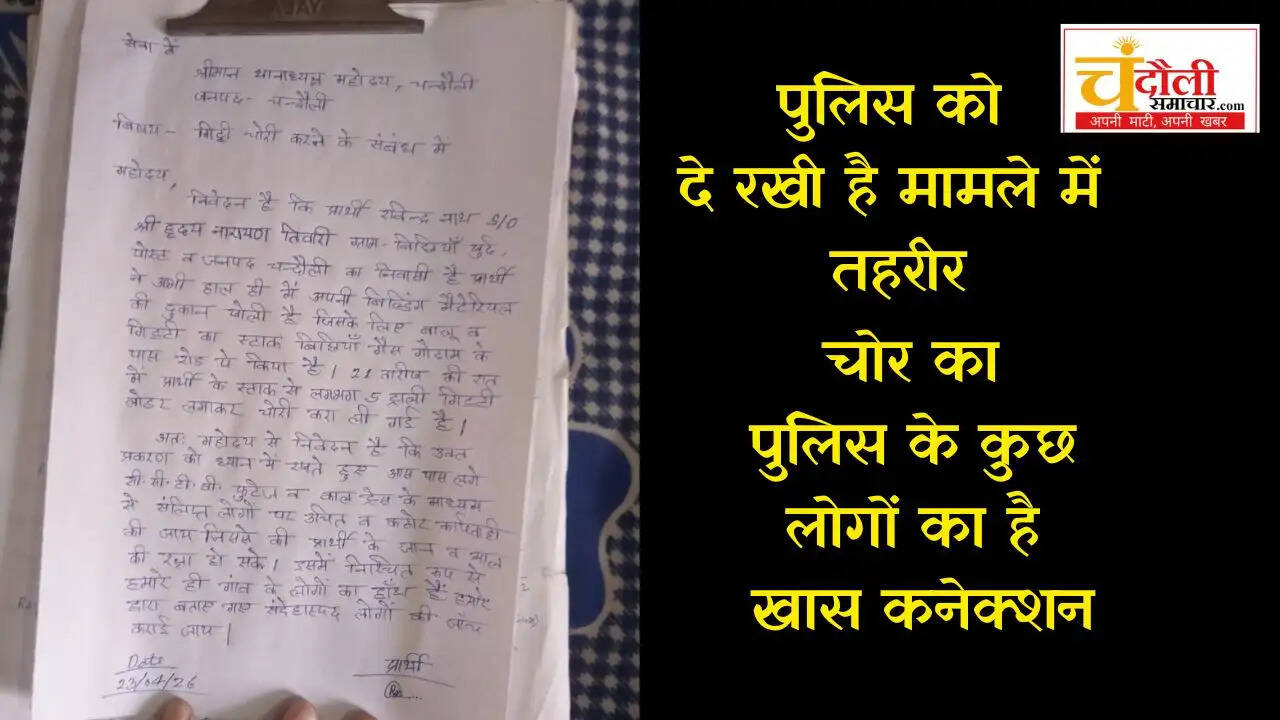 AJAY
सेवा में
श्रीमान थानाध्यक्ष महोदय, चन्दौली
जनपद - चन्दौली
विषय - गिट्टी चोरी करने के संबंध में
महोदय,
निवेदन है कि प्रार्थी रविन्द्र नाथ S/O
श्री हृदय नारायण तिवारी ग्राम - बिछियाँ खुर्द,
पोस्ट व जनपद चन्दौली का निवासी है प्रार्थी
ने अभी हाल ही में अपनी बिल्डिंग मैटेरियल
की दुकान खोली है जिसके लिए बालू व
गिट्टी का स्टाक बिछियाँ गैस गोदाम के
पास रोड पे किया है। 21 तारीख की रात
में प्रार्थी के स्टाक से लगभग 5 ट्राली गिट्टी
लोडर लगाकर चोरी करा ली गई है।
अतः महोदय से निवेदन है कि उक्त
प्रकरण को ध्यान में रखते हुए आस पास लगे
सी.सी.टी.वी. फुटेज व काल ट्रेस के माध्यम
से संलिप्त लोगों पर उचित व कठोर कार्रवाही
की जाय जिससे की प्रार्थी के जान व माल
की रक्षा हो सके। उसमें निश्चित रूप से
हमारे ही गांव के लोगों का हाँथ है हमारे
द्वारा बताए गए संदेहास्पद लोगों की जाँच
कराई जाय।
Date
23/04/26
प्रार्थी
चंदौली
समाचार.com
अपनी माटी, अपनी खबर
पुलिस को
दे रखी है मामले में
तहरीर
चोर का
पुलिस के कुछ
लोगों का है
खास कनेक्शन